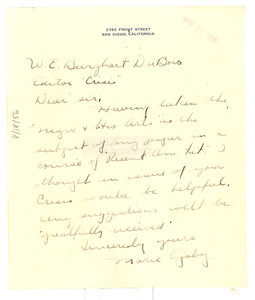 2792 FRONT STREET
SAN DIEGO, CALIFORNIA
W. E. Burghart DuBois
Editor "Crisis"
Dear sir,
Having taken the
"Negro & His Arts" as the
subject of my paper in a
course of Recent Am. Lit. I
thought an issue of your
Crisis would be helpful.
Any suggestions will be
greatfully received
Sincerely yours
Marie